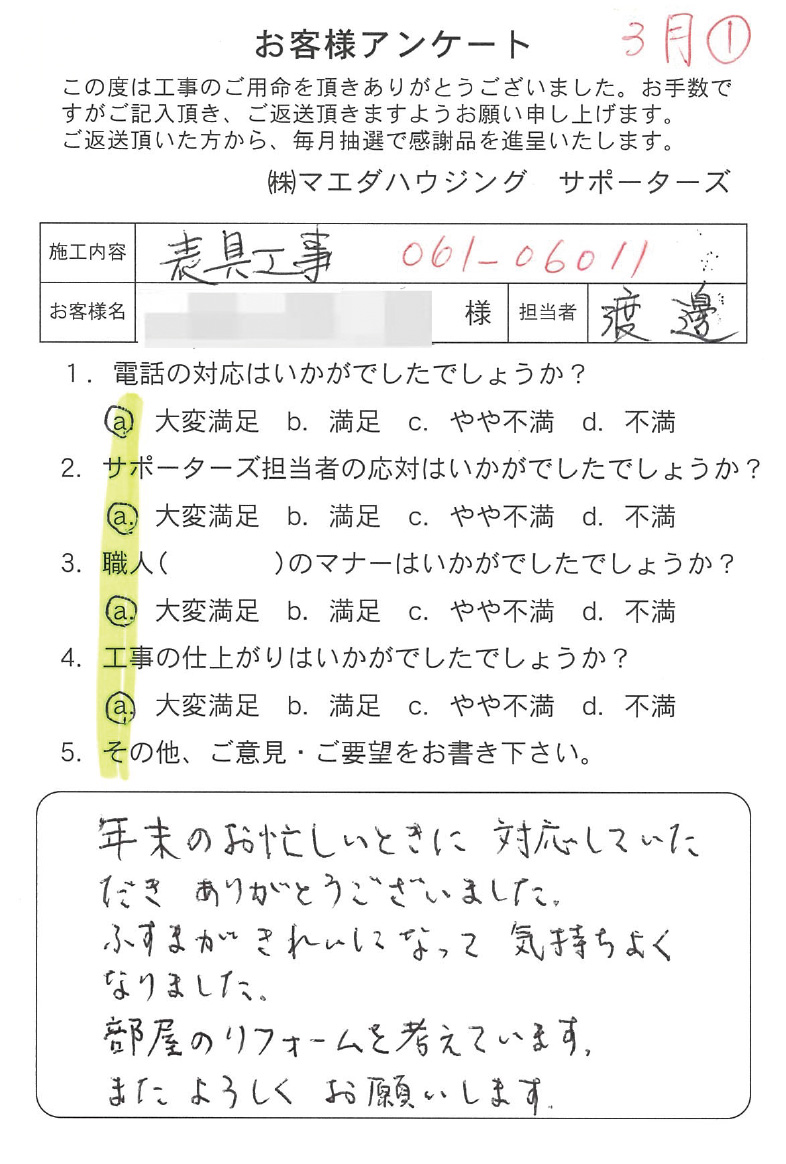 お客様アンケート 3月①
この度は工事のご用命を頂きありがとうございました。お手数で
すがご記入頂き、ご返送頂きますようお願い申し上げます。
ご返送頂いた方から、毎月抽選で感謝品を進呈いたします。
㈱マエダハウジング サポーターズ
施工内容 表具工事 061-06011
お客様名 様 担当者 渡邊
1. 電話の対応はいかがでしたでしょうか？
a. 大変満足 b. 満足 c. やや不満 d. 不満
2. サポーターズ担当者の応対はいかがでしたでしょうか？
a. 大変満足 b. 満足 c. やや不満 d. 不満
3. 職人( )のマナーはいかがでしたでしょうか？
a. 大変満足 b. 満足 c. やや不満 d. 不満
4. 工事の仕上がりはいかがでしたでしょうか？
a. 大変満足 b. 満足 c. やや不満 d. 不満
5. その他、ご意見・ご要望をお書き下さい。
年末のお忙しいときに 対応していた
だき ありがとうございました。
ふすまが きれいになって 気持ちよく
なりました。
部屋のリフォームを考えています。
またよろしく お願いします。